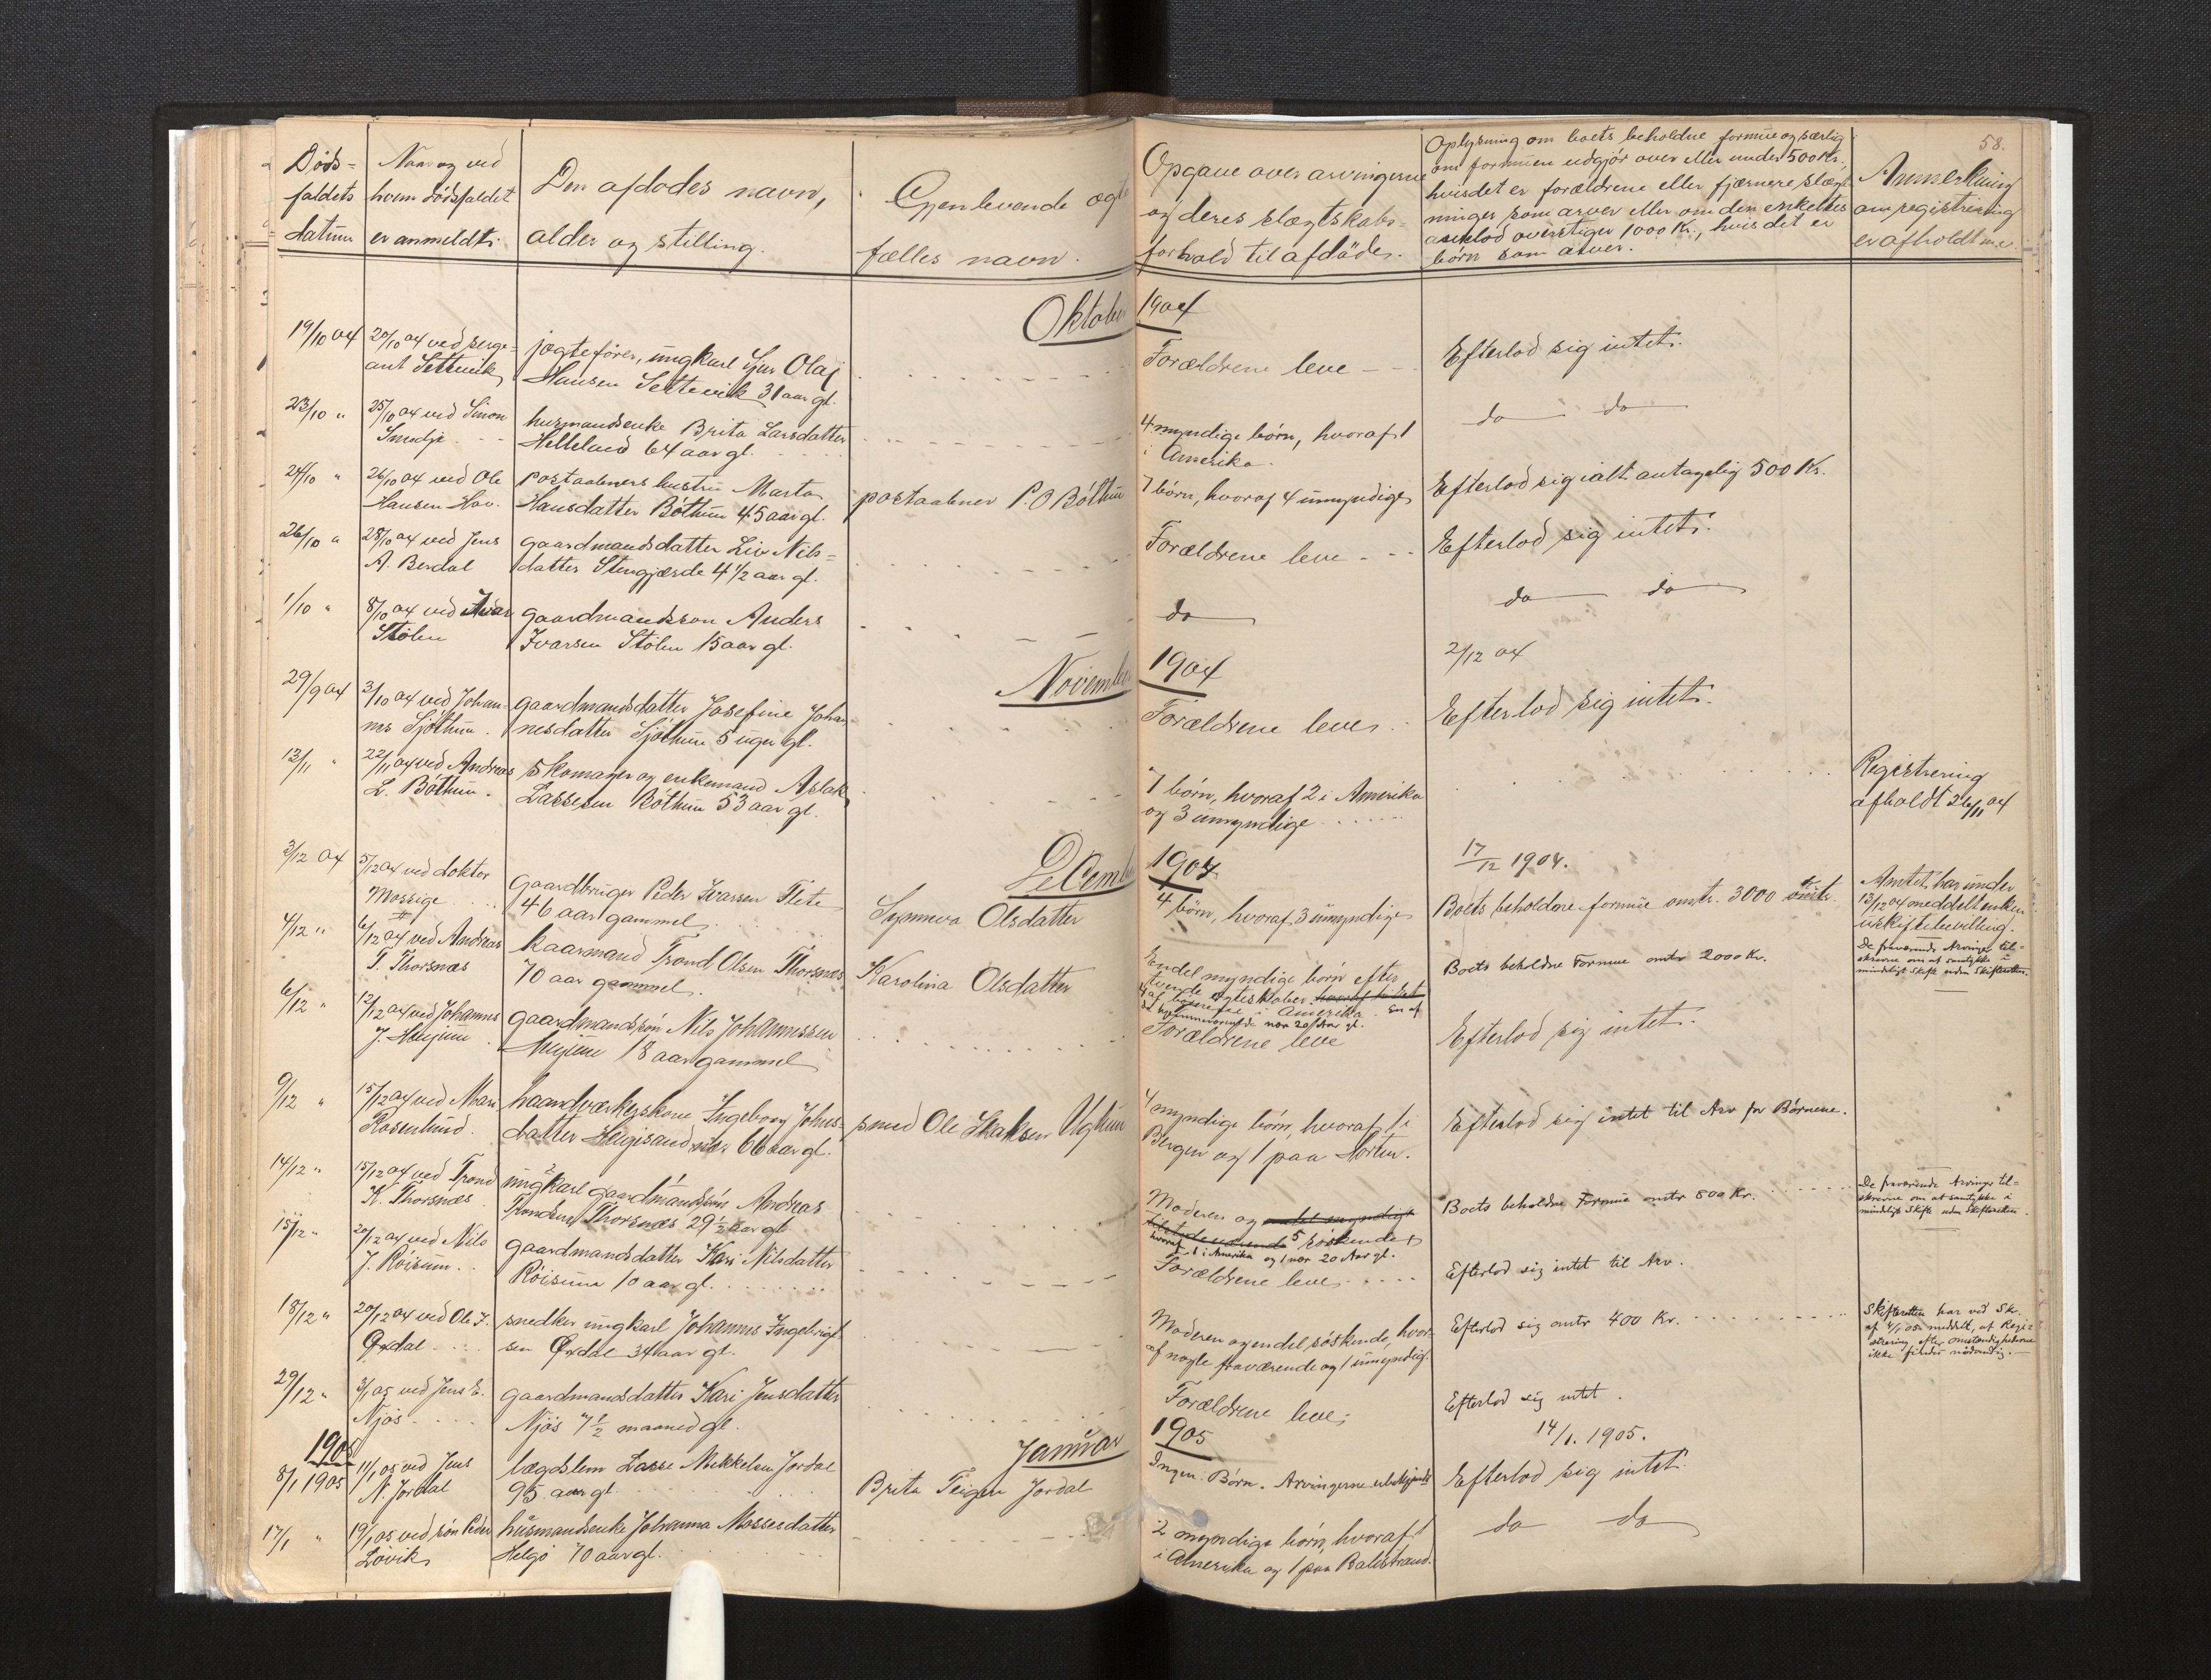 58.
Døds- Naar og ved Den afdødes navn, Gjenlevende ægte Opgave over arvingerne Oplysning om boets beholdne formue og særlig Anmerkning
faldets hvem dødsfaldet alder og stilling. fælles navn. og deres slægtskabs- om formuen udgjør over eller under 500 Kr., om registrering
datum er anmeldt. forhold til afdøde. hvis det er forældrene eller fjærnere slægt- er afholdt m.v.
ninger som arver eller om den enkeltes
arvelod overstiger 1000 Kr., hvis det er
børn som arver.
Oktober 1904
19/10 04 20/10 04 ved serge- jægtefører, ungkarl Sjur Olaj Forældrene leve Efterlod sig intet.
ant Settevik Hansen Settevik 31 aar gl.
23/10 " 25/10 04 ved Simon husmandsenke Brita Larsdatter 4 myndige børn, hvoraf 1 do do
Smedje Helleland 64 aar gl. i Amerika.
24/10 " 26/10 04 ved Ole postaabners hustru Marta postaabner P. O Bøthun 7 børn, hvoraf 4 umyndige Efterlod sig ialt antagelig 500 Kr.
Hansen Hov. Hansdatter Bøthun 45 aar gl.
26/10 " 28/10 04 ved Jens gaardmandsdatter Liv Nils- Forældrene leve Efterlod sig intet.
A. Berdal datter Stengjærde 4 1/2 aar gl.
1/10 " 8/10 04 ved Ivar gaardmandssøn Anders do do do
Stølen Ivarsen Stølen 15 aar gl.
2/12 04
November 1904
29/9 04 3/10 04 ved Johan- gaardmandsdatter Josefine Johan- Forældrene leve Efterlod sig intet.
nes Sjøthun. nesdatter Sjøthun 5 uger gl.
13/11 " 22/11 04 ved Andreas Skomager og enkemand Aslak 7 børn, hvoraf 2 i Amerika Registrering
L. Bøthun. Lassesen Bøthun 53 aar gl. og 3 umyndige afholdt 26/11 04
December 1904 17/12 1904.
3/12 04 5/12 04 ved doktor Gaardbruger Peder Ivarsen Flete Synneva Olsdatter 4 børn, hvoraf 3 umyndige Boets beholdne formue omtr. 3000 Amtet har under
Mossige 46 aar gammel. 13/12 04 meddelt enken
uskiftebevilling.
4/12 " 6/12 04 ved Andreas kaarmand Trond Olsen Thorsnæs Karolina Olsdatter Endel myndige børn efter Boets beholdne Formue omtr 2000 Kr. De fraværende Arvinger til-
T. Thorsnæs 70 aar gammel. tvende Ægteskaber. skrevne om at samtykke i
4 af børnene i Amerika. En af mindeligt Skifte uden Skifteretten.
de hjemmeværende nær 20 Aar gl.
6/12 " 12/12 04 ved Johannes gaardmandssøn Nils Johannessen Forældrene leve Efterlod sig intet.
J. Menjum Menjum 18 aar gammel
9/12 " 15/12 04 ved Mari haandværkerskone Ingeborg Johns- smed Ole Isaksen Ughun 4 myndige børn, hvoraf 1 i Efterlod sig intet til Arv for Børnene.
Rosenlund. datter Helgisand 66 aar gl. Bergen og 1 paa Horten.
14/12 " 15/12 04 ved Trond ungkarl gaardmandssøn Andreas Moderen og endel myndige Boets beholdne Formue omtr 800 Kr. De fraværende Arvinger til-
K. Thorsnæs Trondsen Thorsnæs 29 1/2 aar gl 5 søskende skrevne om at samtykke i
hvoraf 1 i Amerika og 1 nær 20 Aar gl. mindeligt Skifte uden Skifteretten.
15/12 " 20/12 04 ved Nils gaardmandsdatter Kari Nilsdatter Forældrene leve Efterlod sig intet til Arv.
J. Røisum. Røisum 10 aar gl.
18/12 " 20/12 04 ved Ole I. snedker ungkarl Johannes Ingebrigt- Moderen og endel søskende, hvor- Efterlod sig omtr 400 Kr. Skifteretten har ved Sk.
Øxdal sen Øxdal 34 aar gl. af nogle fraværende og 1 umyndig. af 4/1 05 meddelt, at Regi-
strering efter omstændighederne
ikke findes nødvendig.
29/12 " 3/1 05 ved Jens E. gaardmandsdatter Kari Jensdatter Forældrene leve Efterlod sig intet.
Njøs Njøs 7 1/2 maaned gl.
1905 Januar 1905 14/1. 1905.
8/1 1905 11/1 05 ved Jens lægdslem Lasse Mikkelsen Jordal Brita Teigen Jordal Ingen Børn. Arvingerne ubekjendt Efterlod sig intet.
N. Jordal 95 aar gl.
17/1 " 19/1 05 ved søn Peder husmandsenke Johanna Mossesdatter 2 myndige børn, hvoraf 1 do do
Løvik Helgø 70 aar gl. i Amerika og 1 paa Balestrand.